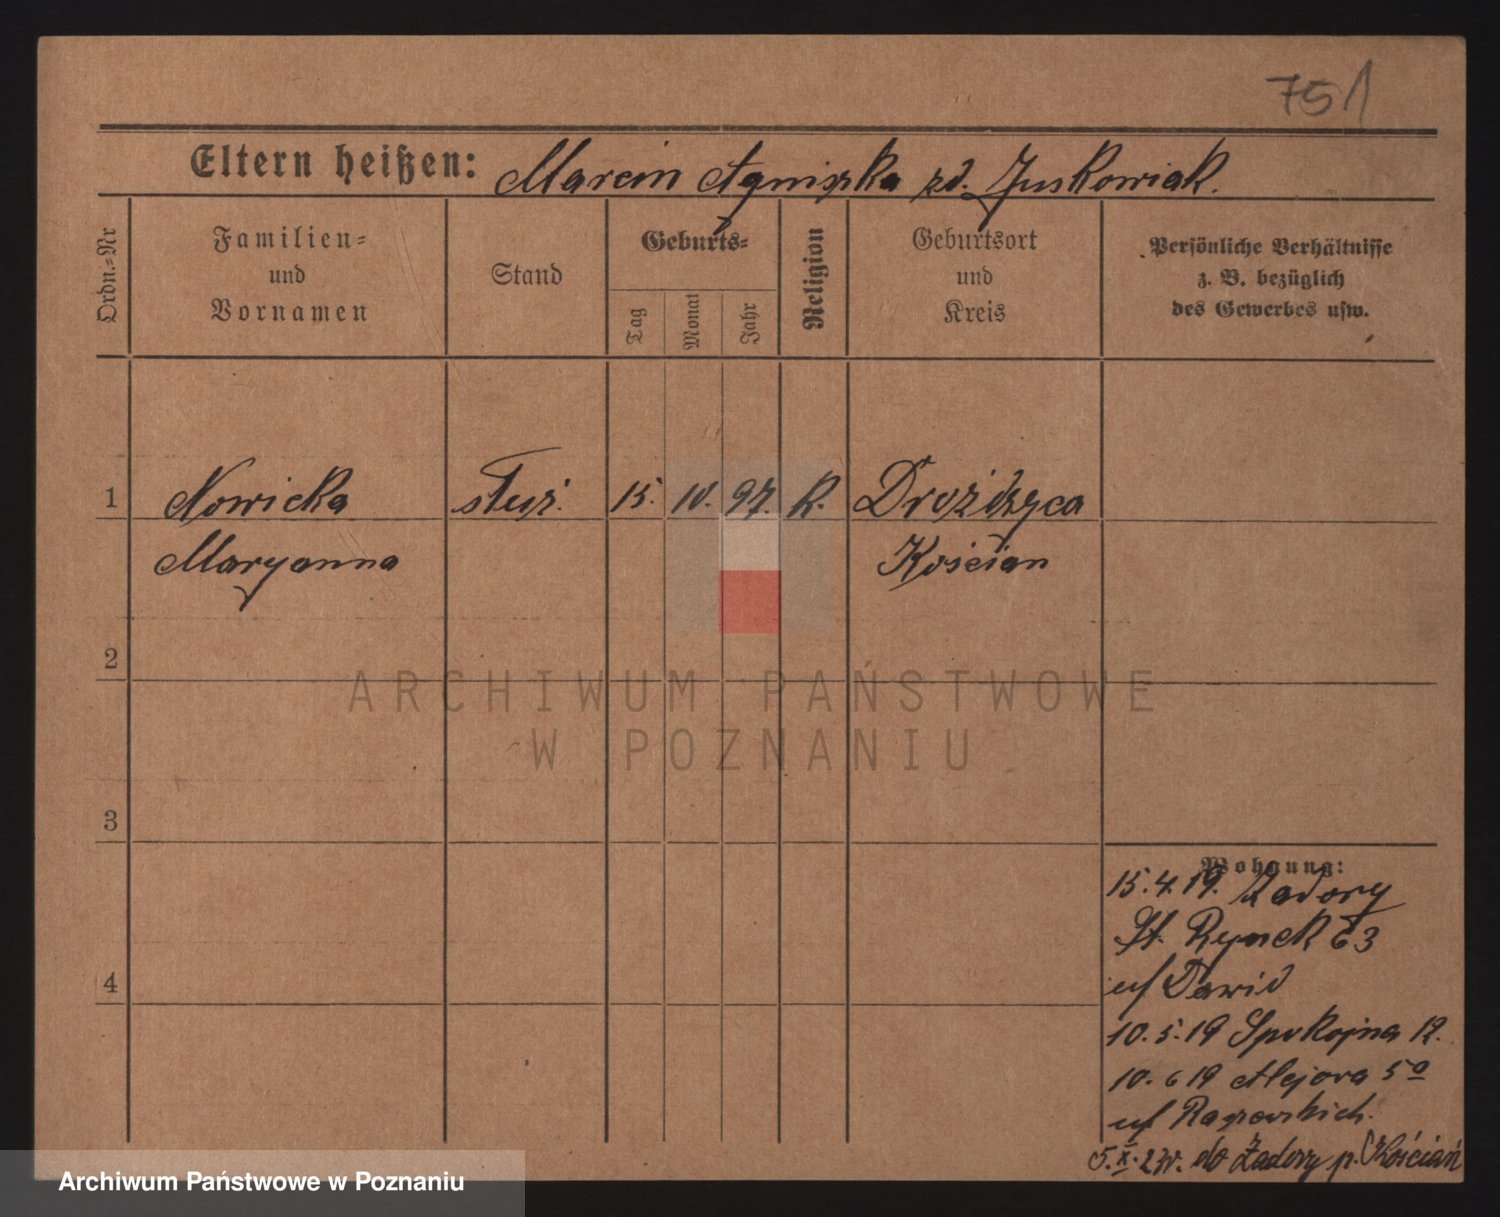 751
Eltern heißen: Marcin Agniszka zd. Juskowiak.
Ordn.-Nr
Familien-
und
Vornamen
Stand
Geburts-
Tag
Monat
Jahr
Religion
Geburtsort
und
Kreis
Persönliche Verhältnisse
z. B. bezüglich
des Gewerbes usw.
1 Nowicka służ. 15. 10. 97. K. Drożdzyca
Maryanna Kościan
2
ARCHIWUM PAŃSTWOWE
W POZNANIU
3
4
Wohnung:
15.4.19. Zadory
St. Rynek 63
u/ Dawid
10.5.19 Spokojna 12.
10.6 19 Alejova 5a
u/
5.X.27r. do Żadory p. Kościań
Archiwum Państwowe w Poznaniu